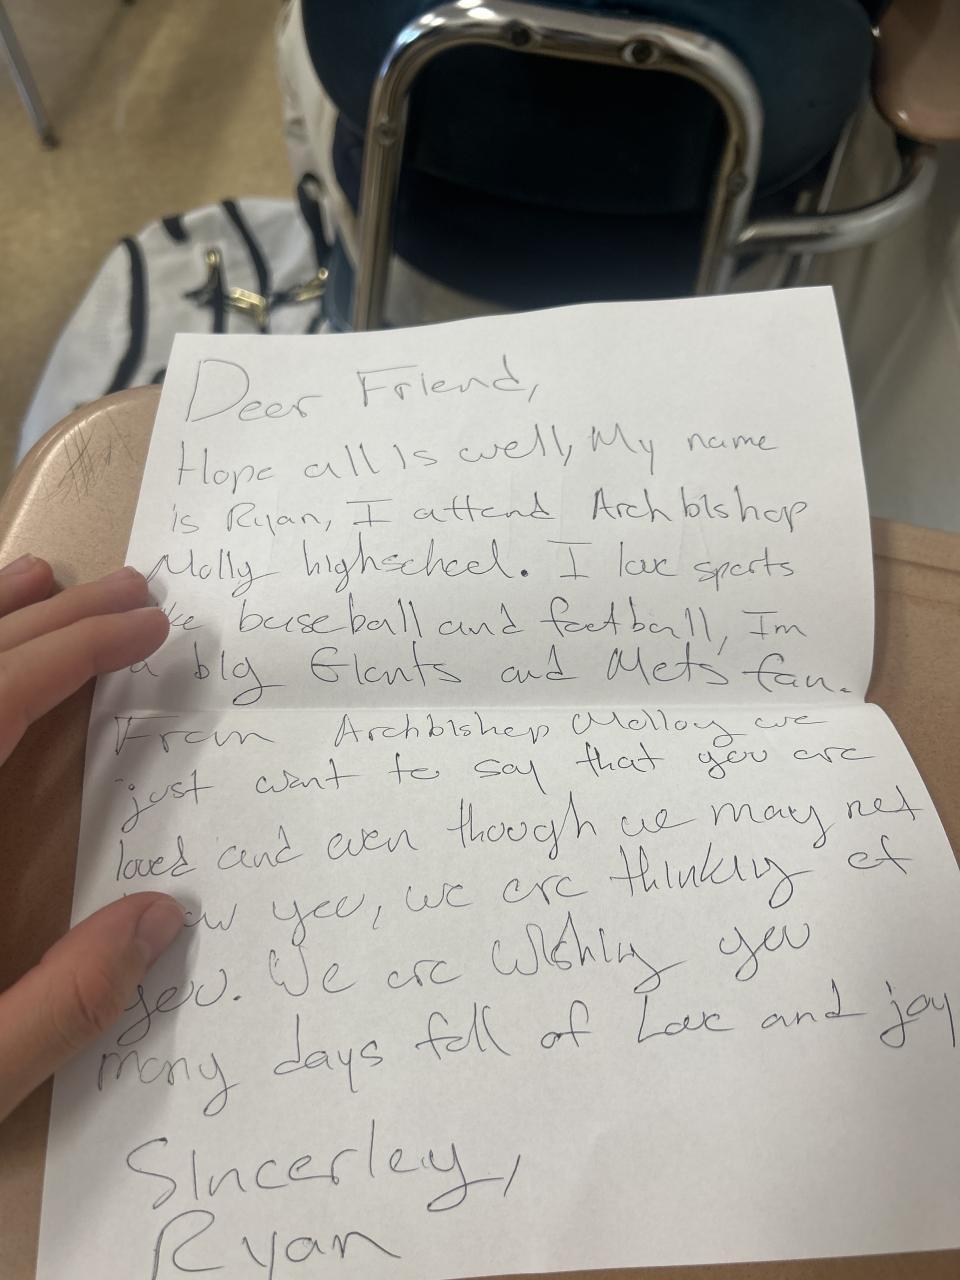 Deer Friend,
Hope all is well, My name
is Ryan, I attend Archbishop
Molly highschool. I love sports
ke baseball and football, Im
a big Giants and Mets fan.
From Archbishop Molloy we
just want to say that you are
loved and even though we may not
ow you, we are thinking of
you. We are wishing you
many days full of Love and joy
Sincerley,
Ryan